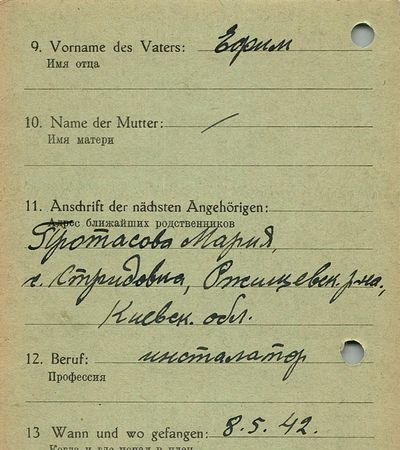 9. Vorname des Vaters: Ефим
Имя отца
10. Name der Mutter: /
Имя матери
11. Anschrift der nächsten Angehörigen:
Адрес ближайших родственников
Протасова Мария,
с. Стридовка, Ржищевск. р-на,
Киевск. обл.
12. Beruf: инсталатор
Профессия
13 Wann und wo gefangen: 8.5.42.
Когда и где попал в плен